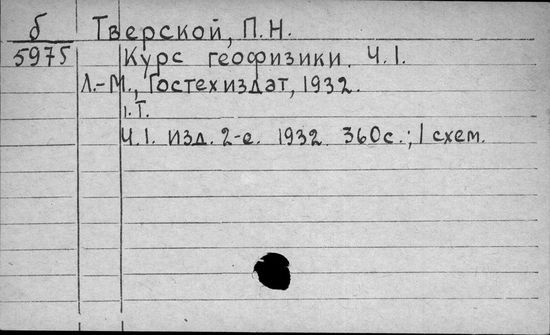 б Тверской, П.Н.
5975 Курс геофизики. Ч.1.
Л.-М., Гостехиздат, 1932.
1.Т.
Ч.1. изд. 2-е. 1932. 360с.; 1 схем.